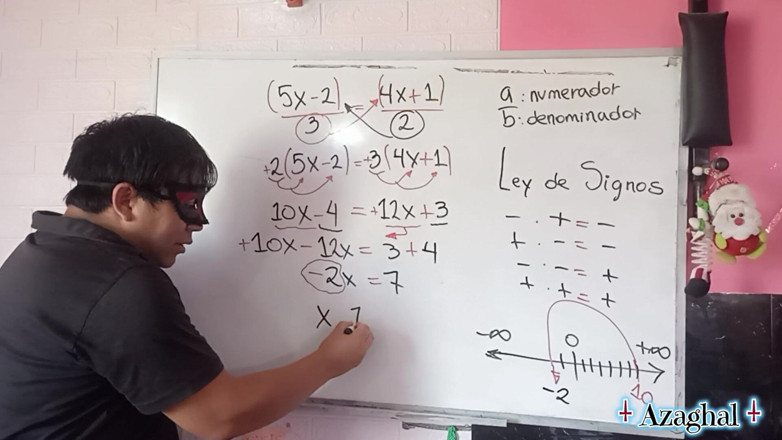 (5x-2) = (4x+1)
3 2
+2(5x-2) = +3(4x+1)
10x-4 = +12x+3
+10x-12x = 3+4
-2x = 7
x 7
a : numerador
b : denominador
Ley de Signos
- . + = -
+ . - = -
- . - = +
+ . + = +
-∞ 0 +∞
-2 10
Azaghal